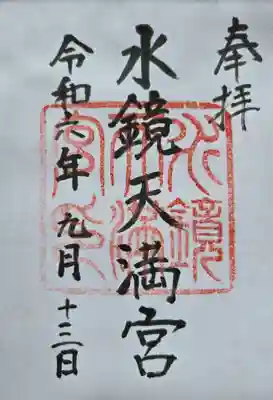 奉拝
水鏡天満宮
令和六年九月十三日